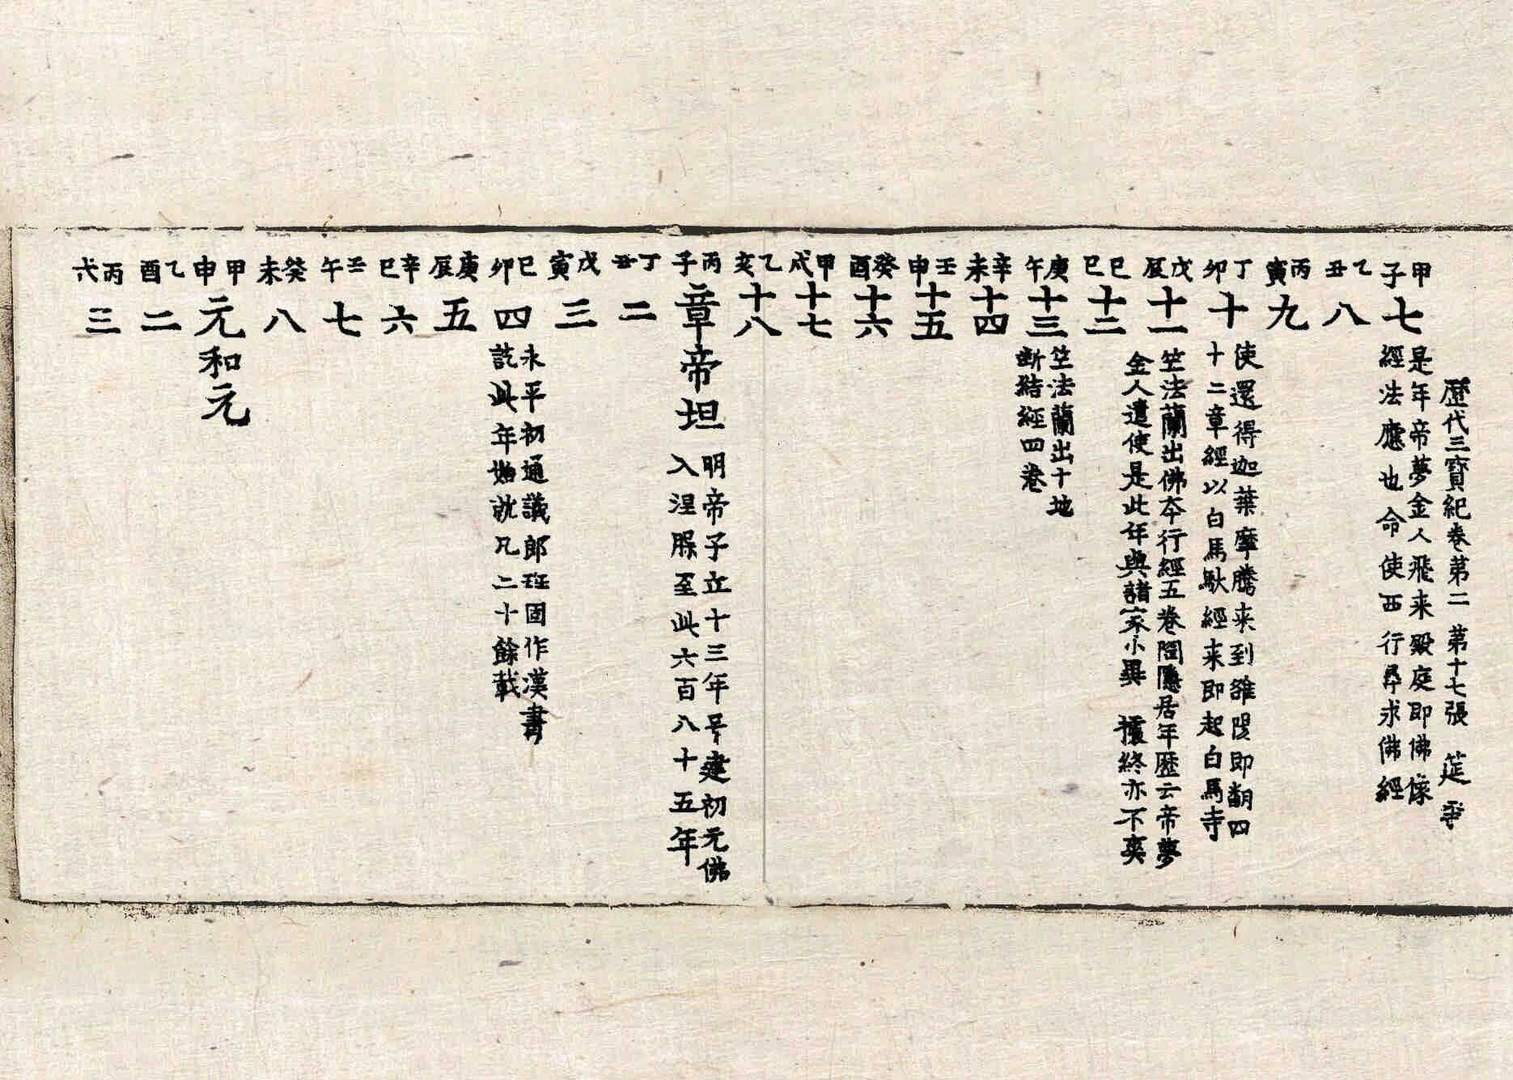 歷代三寶紀卷第二 第十七張 筵
甲子 七 是年帝夢金人飛来殿庭即佛像
經法應也命使西行尋求佛經
乙丑 八
丙寅 九
丁卯 十 使還得迦葉摩騰来到雒陽即翻四
十二章經以白馬䭾經来即起白馬寺
戊辰 十一 竺法蘭出佛夲行經五卷陶隱居年歷云帝夢
金人遣使是此年與諸家小異 據終亦不爽
己巳 十二
庚午 十三 竺法蘭出十地
断結經四卷
辛未 十四
壬申 十五
癸酉 十六
甲戌 十七
乙亥 十八
丙子 章帝坦 明帝子立十三年号建初元佛
入涅縣至此六百八十五年
丁丑 二
戊寅 三
己卯 四 永平初通議郎班固作漢書
訖此年始就凡二十餘載
庚辰 五
辛巳 六
壬午 七
癸未 八
甲申 元和元
乙酉 二
丙戌 三